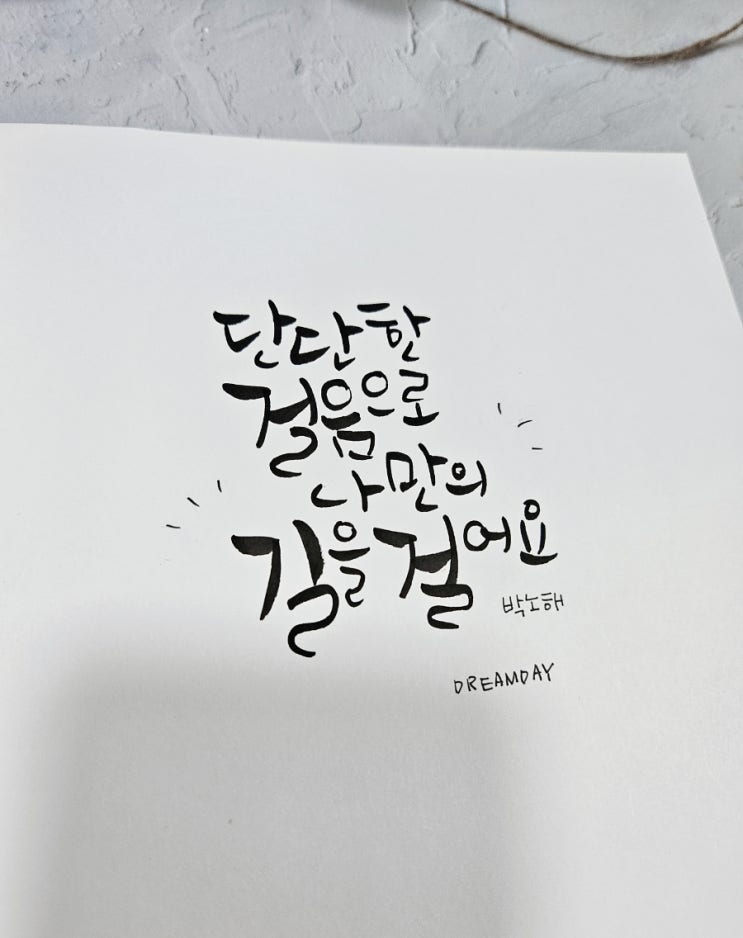 단단한
걸음으로
나만의
길을 걸어요
박노해
DREAMDAY